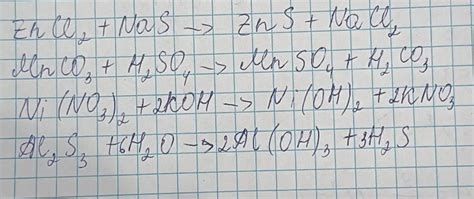 ZnCl₂ + NaS → ZnS + NaCl₂
MnCO₃ + H₂SO₄ → MnSO₄ + H₂CO₃
Ni(NO₃)₂ + 2KOH → Ni(OH)₂ + 2KNO₃
Al₂S₃ + 6H₂O → 2Al(OH)₃ + 3H₂S